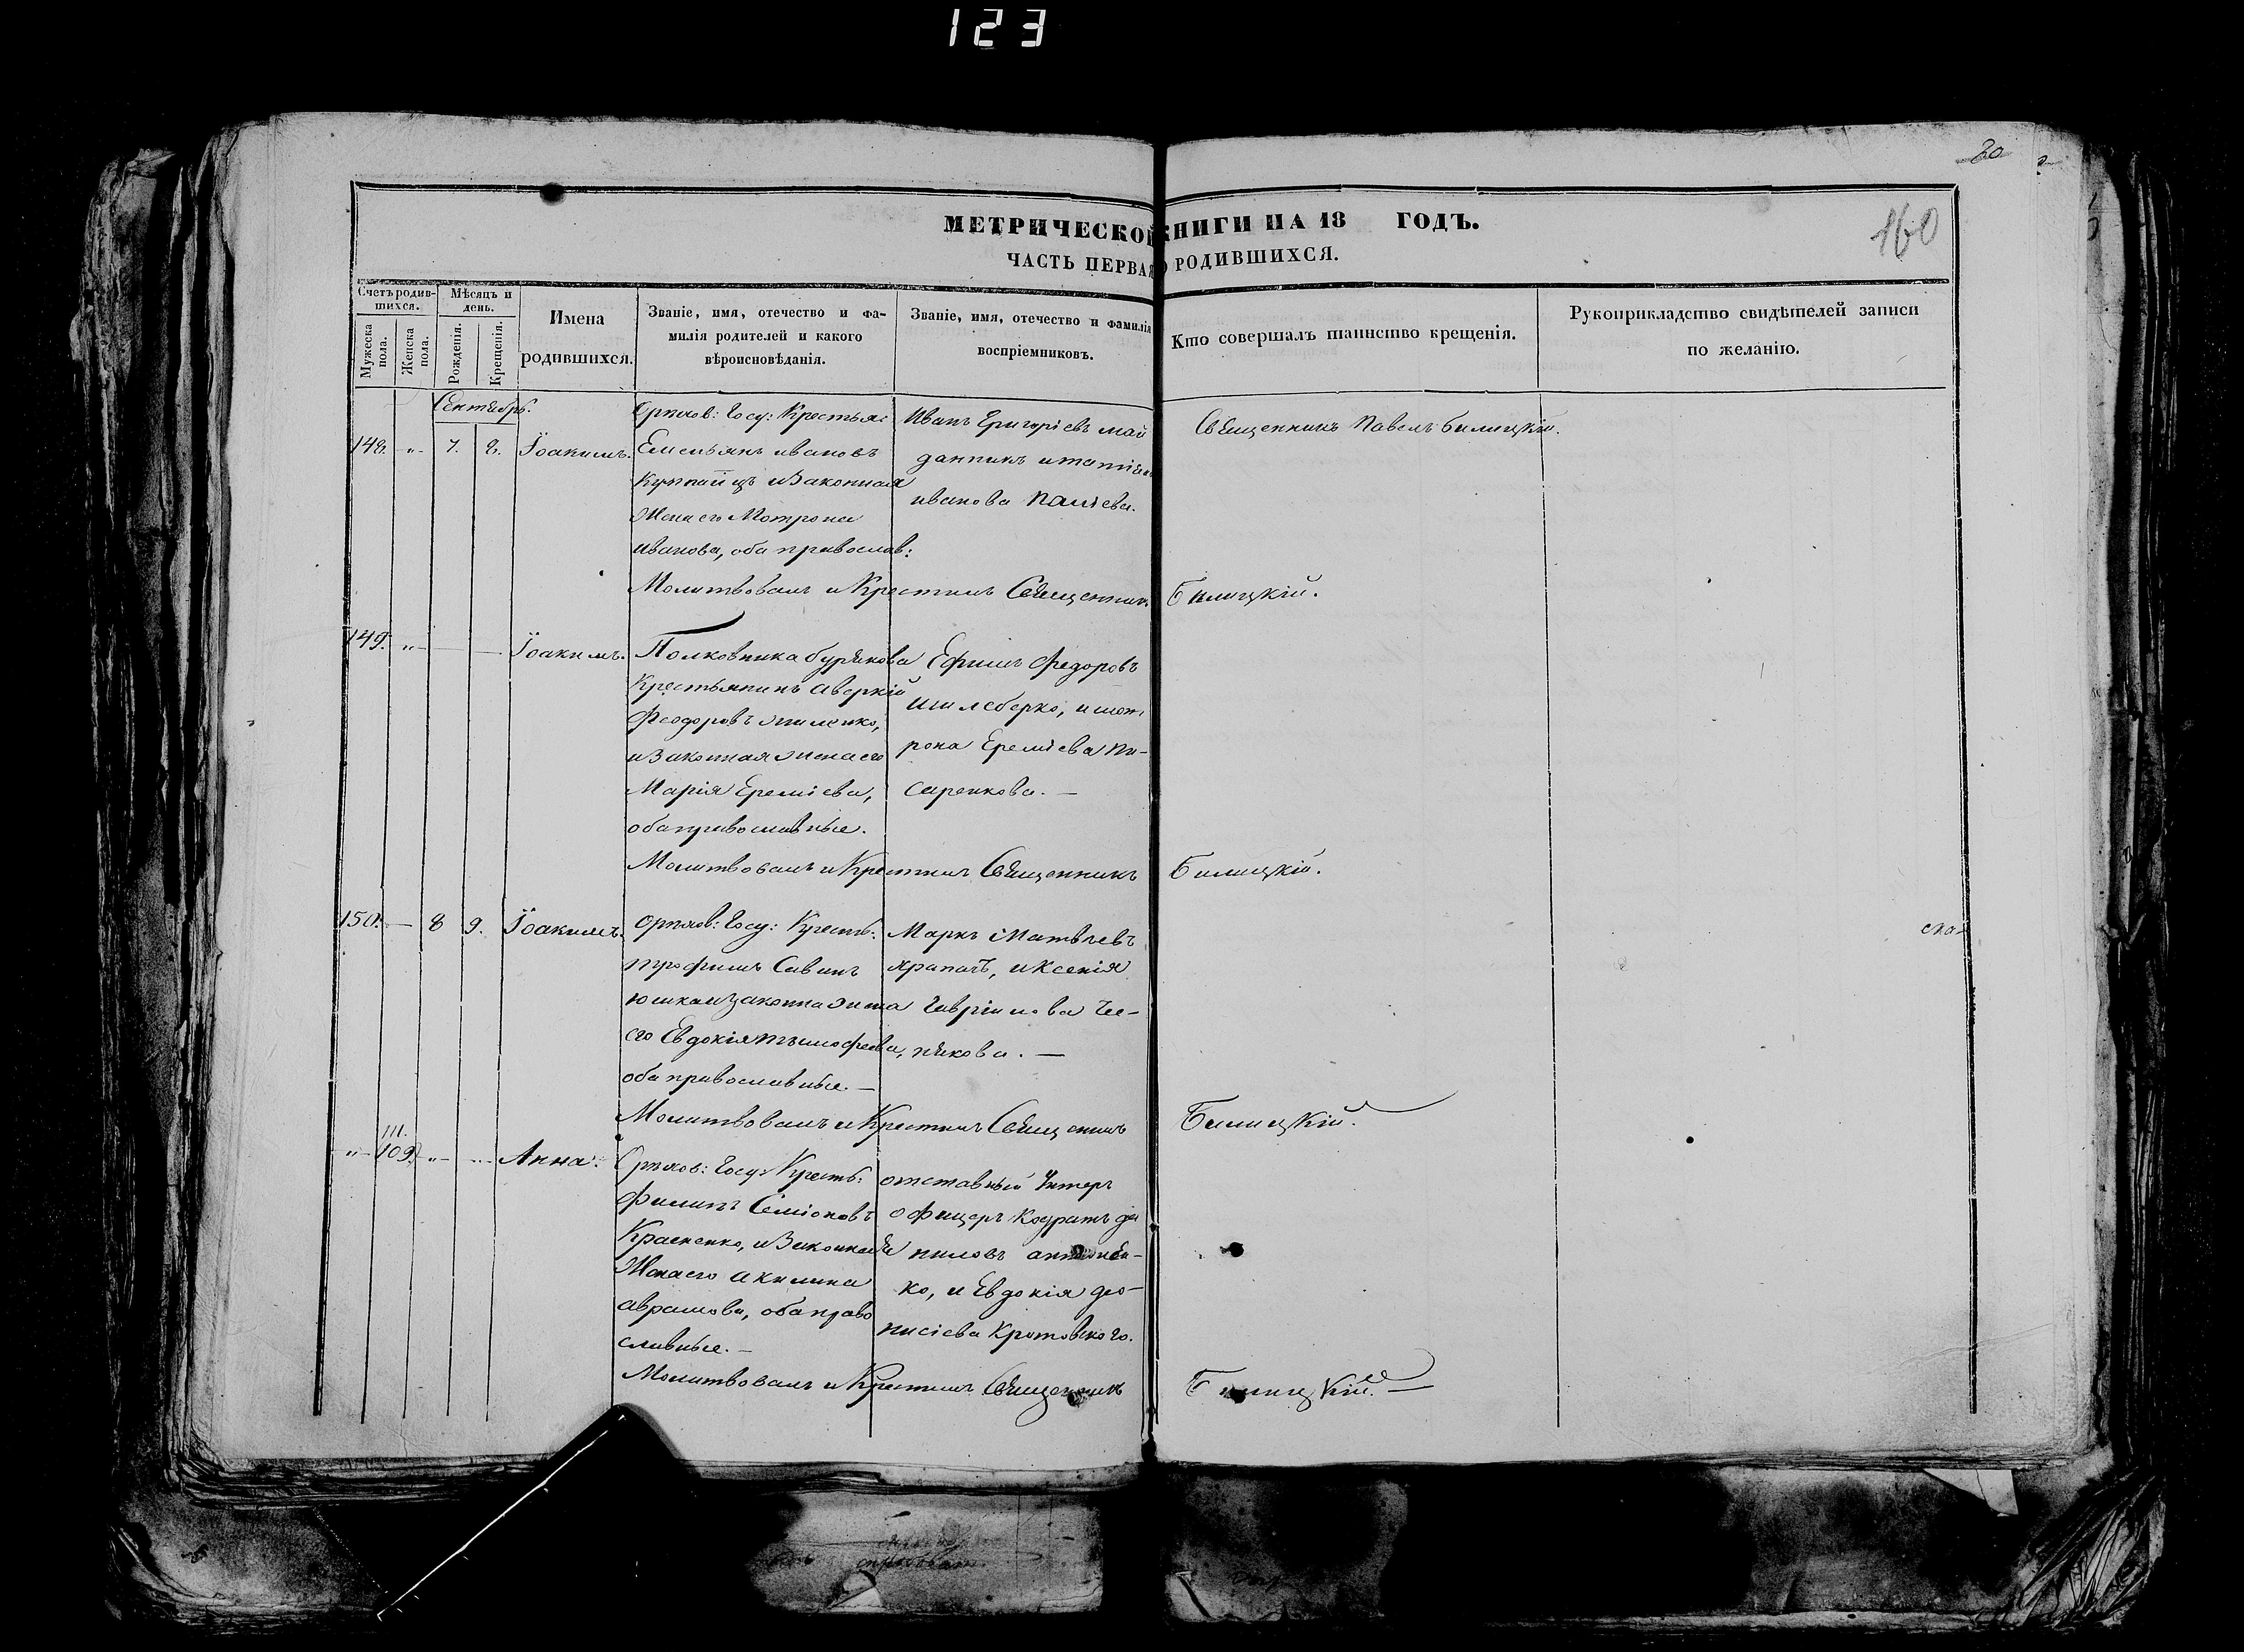 123
20
160
МЕТРИЧЕСКОЙ КНИГИ НА 18 ГОДЪ.
ЧАСТЬ ПЕРВАЯ О РОДИВШИХСЯ.
Счетъ родившихся.
Мужеска пола.
Женска пола.
Мѣсяцъ и день.
Рожденія.
Крещенія.
Имена родившихся.
Званіе, имя, отечество и фамилія родителей и какого вѣроисповѣданія.
Званіе, имя, отечество и фамилія воспріемниковъ.
Кто совершалъ таинство крещенія.
Рукоприкладство свидѣтелей записи по желанію.
Сентябрь.
148. „ 7. 8. Іоакимъ.
Орѣхов: Госу: Крестья:
Емельянъ Ивановъ
и Законная
Жена его Мотрона
Иванова, оба православ:
Иванъ Григоріевъ май
данникъ и татіан
иванова Паліева.
Священникъ Павелъ Билицкій.
Молитвовалъ и Крестилъ Священникъ Билицкій.
149. „ Іоакимъ.
Полковника
Крестьянинъ Аверкій
Феодоровъ
и Законная жена его
Марія Ереміева,
оба православные.
Ефимъ Федоровъ
и мот
рона Ереміева Пи-
саренкова.
Молитвовалъ и Крестилъ Священникъ Билицкій.
150. 8 9. Іоакимъ.
Орѣхов: Госу: Кресть:
трофимъ Савинъ
юшка и законна жена
его Евдокія тимофеева,
оба православные.
Маркъ Матвѣевъ
храпачъ, и Ксенія
Гавріилова Че-
пѣкова.
Молитвовалъ и Крестилъ Священикъ Билицкій.
111.
„ 109. „ „ Анна.
Орѣхов: Госу: Кресть:
Филипъ Семіоновъ
Красненко, и Законная
Жена его акилина
аврамова, оба право
славные.
отставный Унтеръ
офицеръ Кодратъ да
ниловъ
ко, и Евдокія део-
нисіева Кротовского.
Молитвовалъ и Крестилъ Священникъ Билицкій.